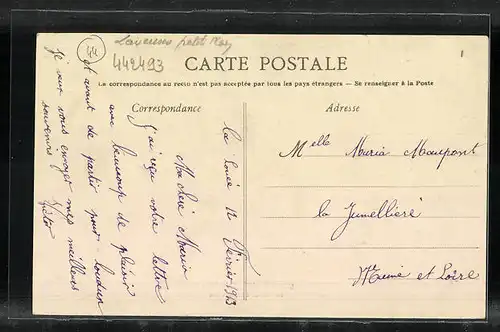 44
442493
CARTE POSTALE
La correspondance au recto n'est pas acceptée par tous les pays étrangers — Se renseigner à la Poste
Correspondance
Adresse
la 12 Février 1913
Ma chère Maria
J'ai reçu votre lettre
avec beaucoup de plaisir
et avant de partir pour
je veux vous envoyer mes meilleurs
souvenirs
Melle Maria Maupont
la Jumellière
Maine et Loire